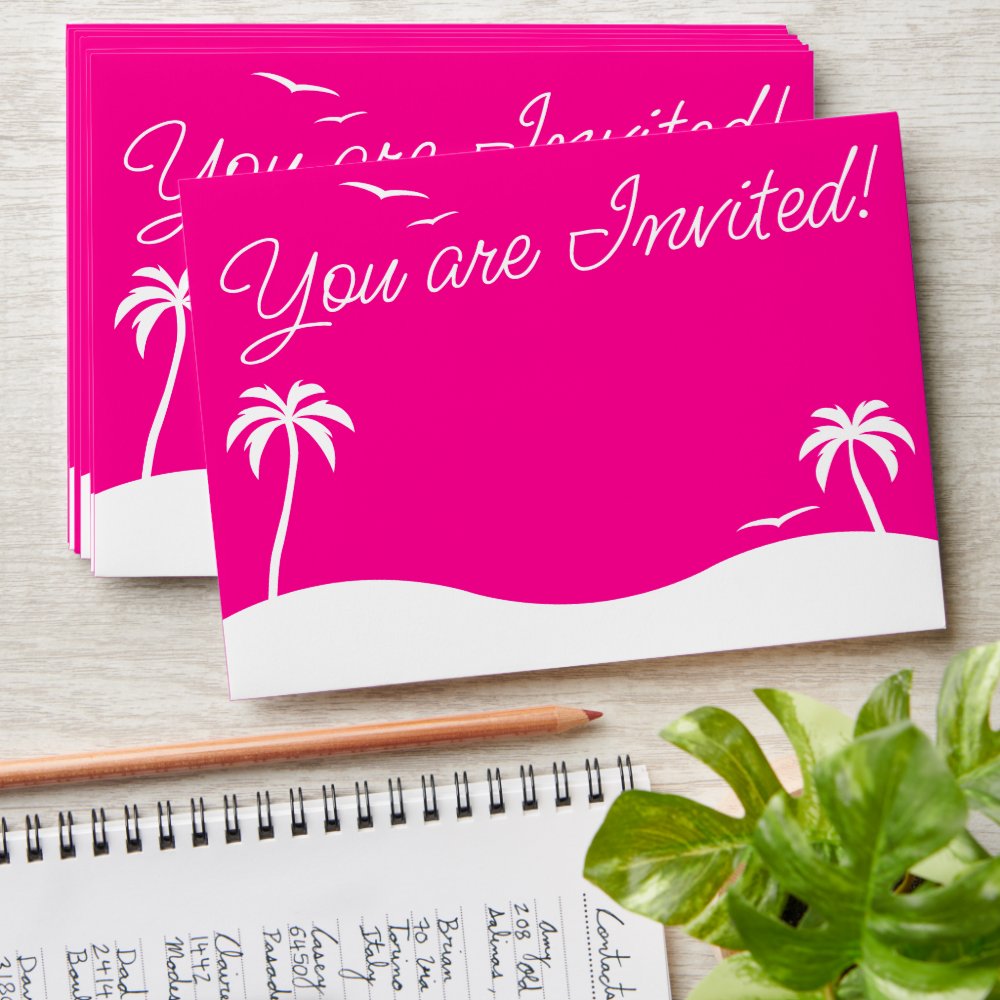 You are Invited!
You are Invited!
Contacts
Amy
208 Old
Salinas,
Brian
70 Via
Torino
Italy
Casey
6450
Pasade
Claire
1442
Modes
Dad
2414
Boul
Dav
318